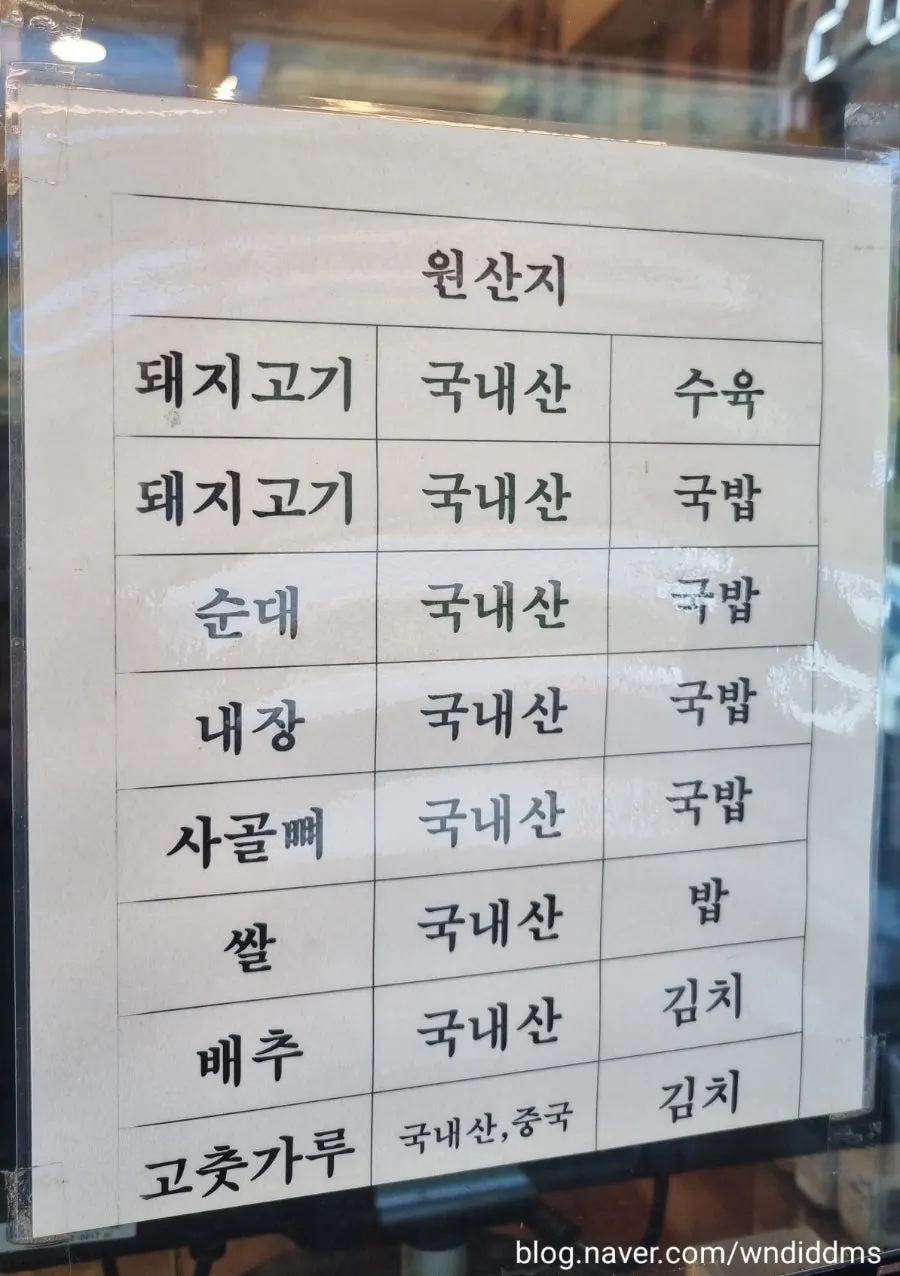 원산지
돼지고기 국내산 수육
돼지고기 국내산 국밥
순대 국내산 국밥
내장 국내산 국밥
사골뼈 국내산 국밥
쌀 국내산 밥
배추 국내산 김치
고춧가루 국내산,중국 김치
blog.naver.com/wndiddms